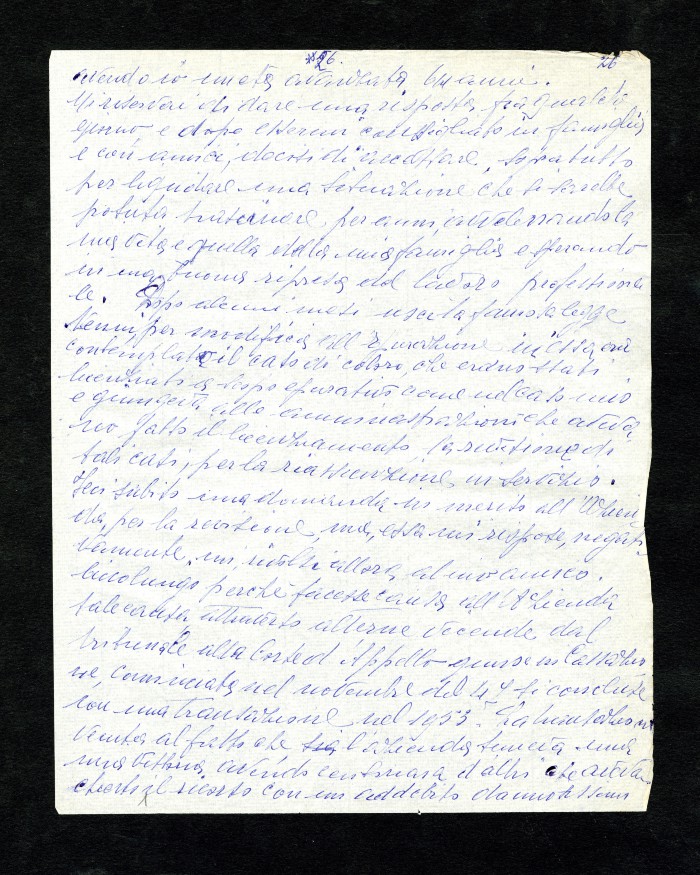 26. 26
avendo io un età avanzata 64 anni.
Mi riservai di dare una risposta fra qualche
giorno e dopo essermi consigliato in famiglia
e con amici, decisi di accettare, sopratutto
per liquidare una situazione che si sarebbe
potuta trascinare per anni,
mia vita e quella della mia famiglia e sperando
in una buona ripresa del lavoro professiona
le. Dopo alcuni mesi uscì la famosa legge
per modifica all'epurazione in essa era
contemplato il caso di coloro, che erano stati
licenziati a scopo epurativo come nel caso mio
e ingiungeva alle amministrazioni che aveva
no fatto il licenziamento, la revisione di
tali casi, per la riassunzione in servizio.
Feci subito una domanda in merito all'Azien
da, per la revisione, ma, essa mi rispose, negati
vamente, mi rivolsi allora al mio amico
perché facesse causa all'Azienda
tale causa attraverso alterne vicende dal
tribunale alla Corte d'Appello giunse in Cassazio
ne, cominciata nel novembre del 47 si concluse
con una transazione nel 1953. La
al fatto che l'azienda temeva una
mia vittoria avendo centinaia d'altri che aveva
con un addebito